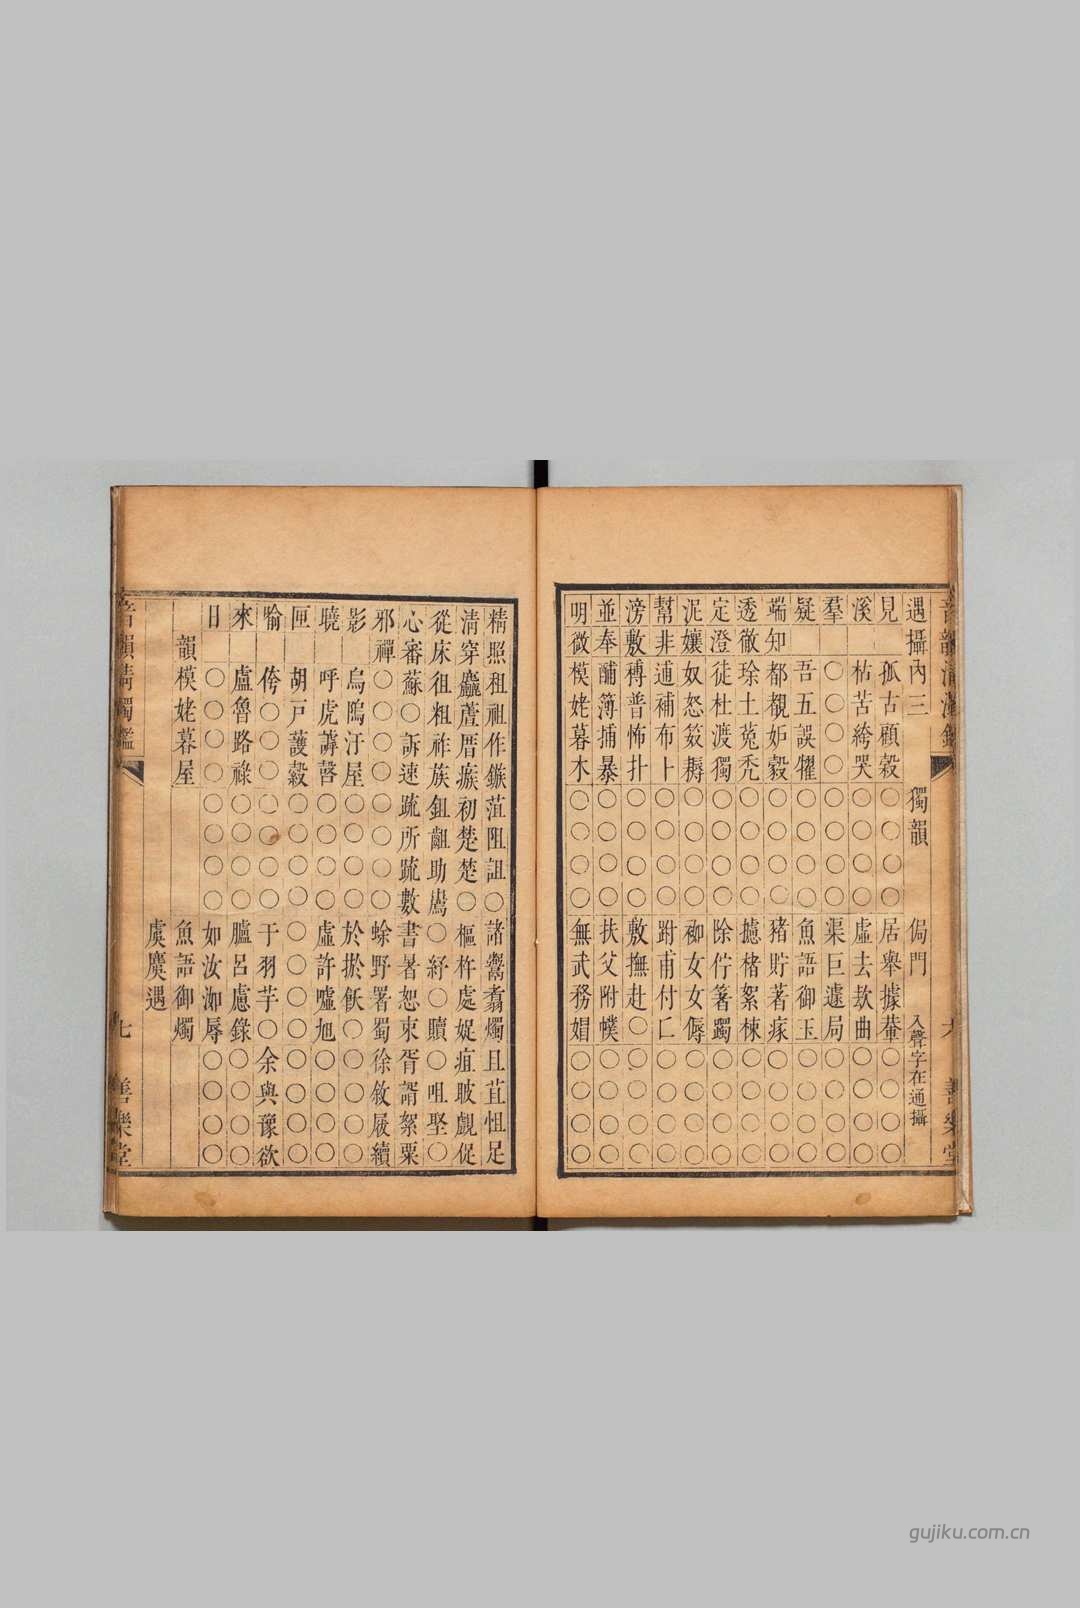 遇攝內三 獨韻 侷門 入聲字在通攝
見 孤古顧穀○○○○居舉據䓤○○○○
溪 枯苦絝哭○○○○虛去欻曲○○○○
羣 ○○○○○○○○渠巨遽局○○○○
疑 吾五誤㹤○○○○魚語御玉○○○○
端知都覩妒縠○○○○豬貯著瘃○○○○
透徹琭土菟禿○○○○攄楮絮楝○○○○
定澄徒杜渡獨○○○○除佇箸躅○○○○
泥孃奴怒笯耨○○○○袽女女傉○○○○
幫非逋補布卜○○○○跗甫付匚○○○○
滂敷䮒普怖扑○○○○敷撫赴○○○○○
並奉酺簿捕暴○○○○扶父附幞○○○○
明微模姥暮木○○○○無武務媢○○○○
精照租祖作鏃菹阻詛○諸鬻翥燭且苴怚足
清穿麤蘆厝瘯初楚楚○樞杵處娖疽跛覷促
從床徂粗祚族鉏齟助鸀○紓○贖○咀堅○
心審蘇○訴速疏所疏數書暑恕束胥諝絮粟
邪禪○○○○○○○○蜍野署蜀徐敘屐續
影 烏隖汙屋○○○○於扵飫○○○○○
曉 呼虎謼嗀○○○○虛許噓旭○○○○
匣 胡戸護縠○○○○○○○○○○○○
喻 侉○○○○○○○于羽芋○余與豫欲
來 盧魯路祿○○○○臚呂慮錄○○○○
日 ○○○○○○○○如汝洳辱○○○○
韻模姥暮屋 魚語御燭
虞麌遇
七 善樂堂
善樂堂
gujiku.com.cn